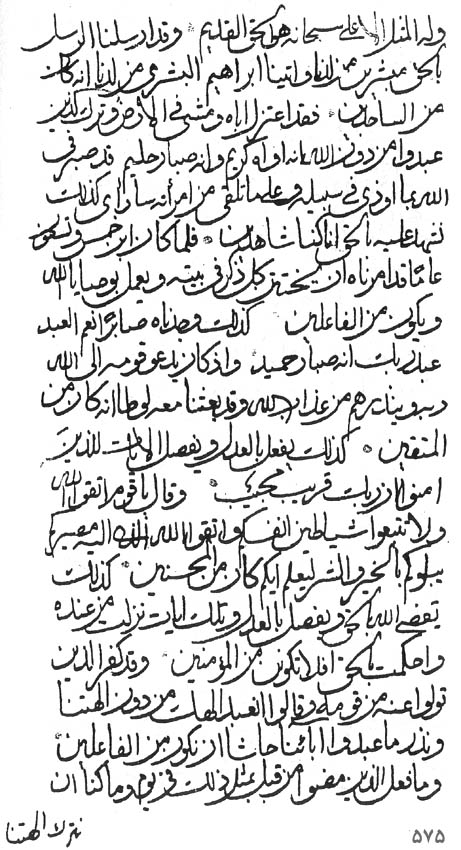 وله المثل الاعلى سبحانه هو الحق القديم * وقد ارسلنا الرسل
بالحق مبشرين من لدنا واتينا ابراهيم البشرى من لدنا انه كان
من الساجدين * فقد اعتزل اباه ومشى في الارض وترك الذين
عبدوا من دون الله انه اواه كريم وانه صبار حليم قد صبر في
الله بما اوذي في سبيله وعلى ما تلقى من امرأته ساراى كذلك
نشهد عليه بالحق انا كنا شاهدين * فلما كان ابن خمس وتسعون
عاما قد امرناه ان يختتن كل ذكر في بيته ويعمل بوصايا الله
ويكون من الفاعلين كذلك وجدناه صابرا نعم العبد
عبد ربك انه صبار حميد واذ كان يدعو قومه الى الله
ربه وينذرهم من عذاب الله وقد بعثنا معه لوطا انه كان من
المتقين * كذلك يفعل بالعدل ويفصل الايات للذين
امنوا ان ربك قريب مجيب * وقال يا قوم اتقوا الله
ولا تتبعوا شياطين انفسكم واتقوا الله اليه مصيركم
يبلوكم بالخير والشر ليعلم ايكم كان من المحسنين كذلك
يقضي الله بالحق ويفصل بالعدل وتلك ايات نزلت من عنده
واحكمت بالحق افلا تكون من المؤمنين وقد كفر الذين
تولوا عنه من قومه وقالوا انعبد الهك من دون الهتنا
ونذر ما عبدوا اباءنا حاشا ان نكون من الفاعلين
وما فعل الذين مضوا من قبل مثل ذلك في يوم وما كنا ان
نترك الهتنا
٥٧٥